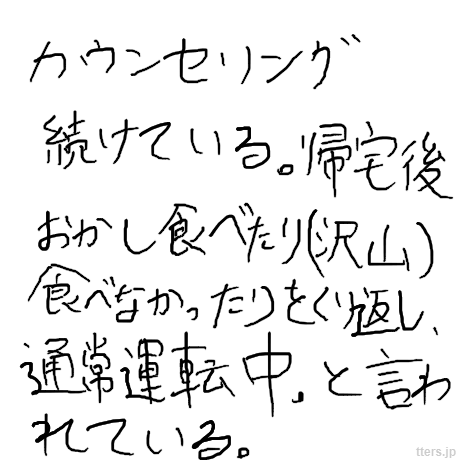 カウンセリング
続けている。帰宅後
おかし食べたり(沢山)
食べなかったりをくり返し、
通常運転中。と言わ
れている。
tters.jp